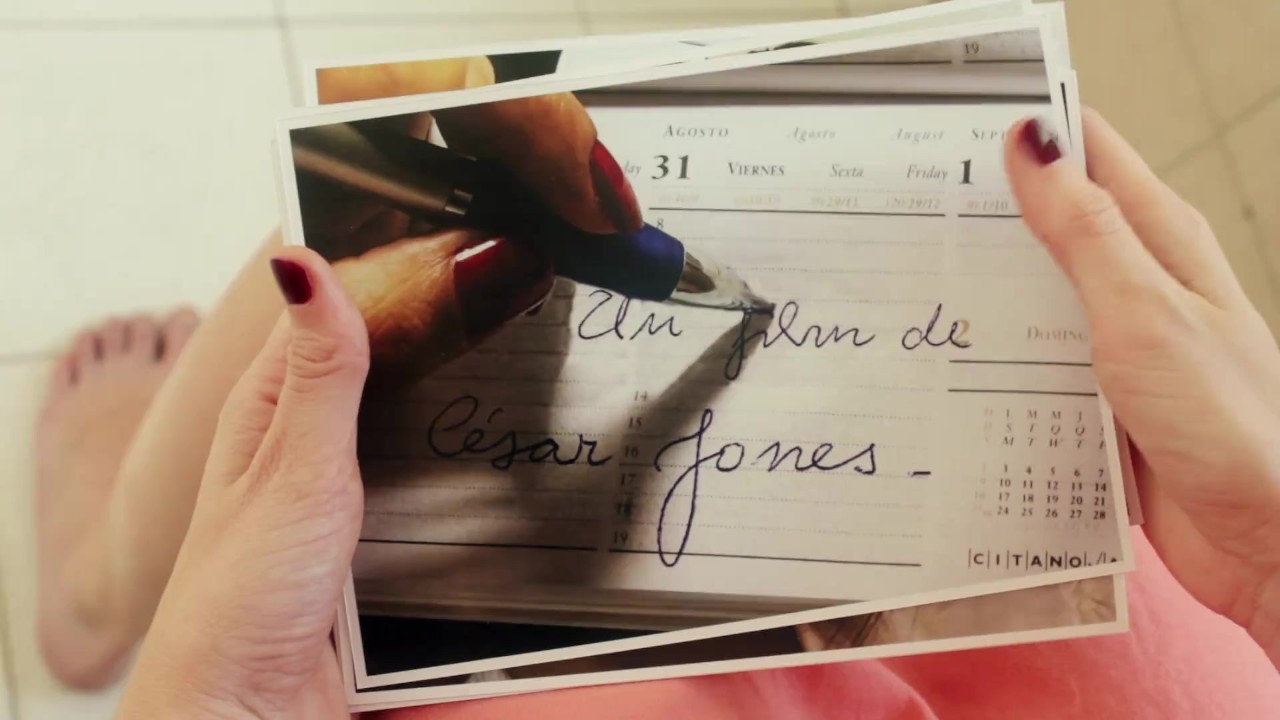 19
AGOSTO Agosto August SEPT
31 VIERNES Sexta Friday 1
8
Un film de
2 DOMING
14
César Jones -
15
16
17
18
19
L M M J
S T Q Q
M T W T F
3 4 5 6 7
10 11 12 13 14
17 18 19 20 21
24 25 26 27 28
CITANO